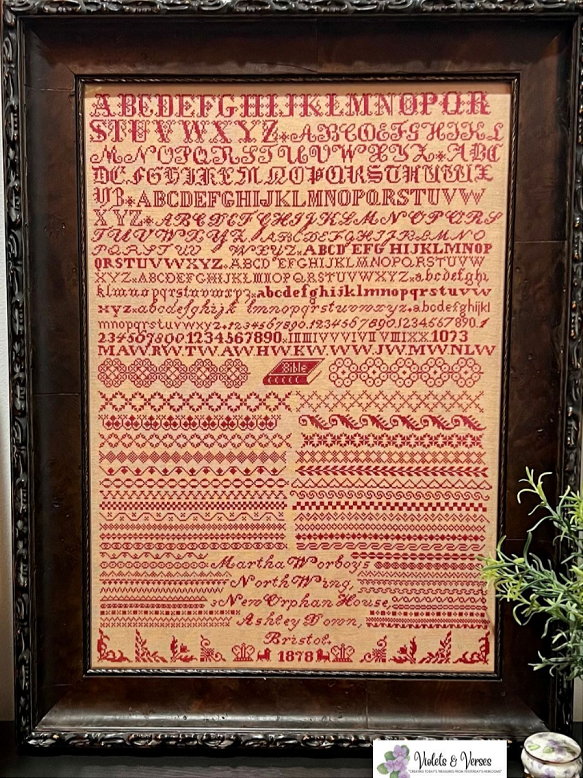 ABCDEFGHIJKLMNOPQR
STUVWXYZ*ABCDEFGHIJKL
MNOPQRSTUVWXYZ*ABC
DEFGHIJKLMNOPQRSTUVWX
YZ*ABCDEFGHIJKLMNOPQRSTUVW
XYZ*ABCDEFGHIJKLMNOPQRS
TUVWXYZ ABCDEFGHIJKLMNO
PQRSTUV WXYZ ABCDEFGHIJKLMNOP
QRSTUVWXYZ ABCDEFGHIJKLMNOPQRSTUVW
XYZ ABCDEFGHIJKLMNOPQRSTUVWXYZ abcdefghi
jklmnopqrstuvwxyz abcdefghijklmnopqrstuvw
xyz abcdefghijk lmnopqrstuvwxyz abcdefghijkl
mnopqrstuvwxyz 1234567890 1234567890 1234567890 1
234567890 1234567890 I II III IV V VI VII VIII IX X 1073
MA WR RW TW AW HW KV WW JW MW NLW
Bible
Martha Worboys
North Wing,
New Orphan House,
Ashley Down,
Bristol.
1878
Violets & Verses
"CREATING TODAY'S TREASURES FROM YESTERDAY'S HEIRLOOMS"